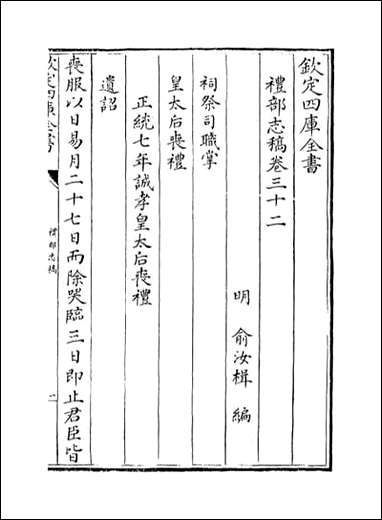 欽定四庫全書
禮部志稿卷三十二
明 俞汝楫 編
祠祭司職掌
皇太后喪禮
正統七年誠孝皇太后喪禮
遺詔
喪服以日易月二十七日而除哭臨三日即止君臣皆
欽定四庫全書
禮部志稿
一